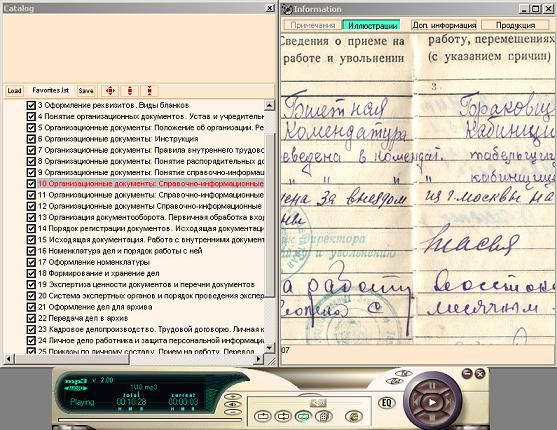 Catalog
Load
Favorites.lst
Save
3 Оформление реквизитов. Виды бланков
4 Понятие организационных документов. Устав и учредительн
5 Организационные документы: Положение об организации. Ре
6 Организационные документы: Инструкция
7 Организационные документы: Правила внутреннего трудово
8 Организационные документы: Понятие распорядительных до
9 Организационные документы: Понятие справочно-информац
10 Организационные документы: Справочно-информационные
11 Организационные документы: Справочно-информационные
12 Организационные документы Справочно-информационные
13 Организация документооборота. Первичная обработка вхо
14 Порядок регистрации документов. Исходящая документаци
15 Исходящая документация. Работа с внутренними документ
16 Номенклатура дел и порядок работы с ней
17 Оформление номенклатуры
18 Формирование и хранение дел
19 Экспертиза ценности документов и перечни документов
20 Система экспертных органов и порядок проведения экспер
21 Оформление дел для архива
22 Передача дел в архив
23 Кадровое делопроизводство. Трудовой договорю. Личная к
24 Личное дело работника и защита персональной информаци
25 Приказы по личному составу. Прием на работу. Перевод
Information
Примечания
Иллюстрации
Доп. информация
Продукция
Сведения о приеме на
работе и увольнении
работу, перемещениях
(с указанием причин)
3
Билетная
Комендатура
за выездом
из г. москвы на
директора
и увольнению
работу
месячным
07
mp3
AUDIO
v. 2.00
Playing
1\10.mp3
total
00:10:28
H M S
current
00:00:03
H M S
EQ